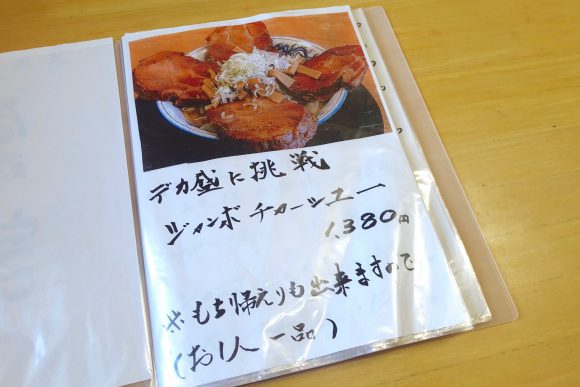 デカ盛に挑戦
ジャンボチャーシュー
1,380円
※もち帰えりも出来ますので
(お1人一品)